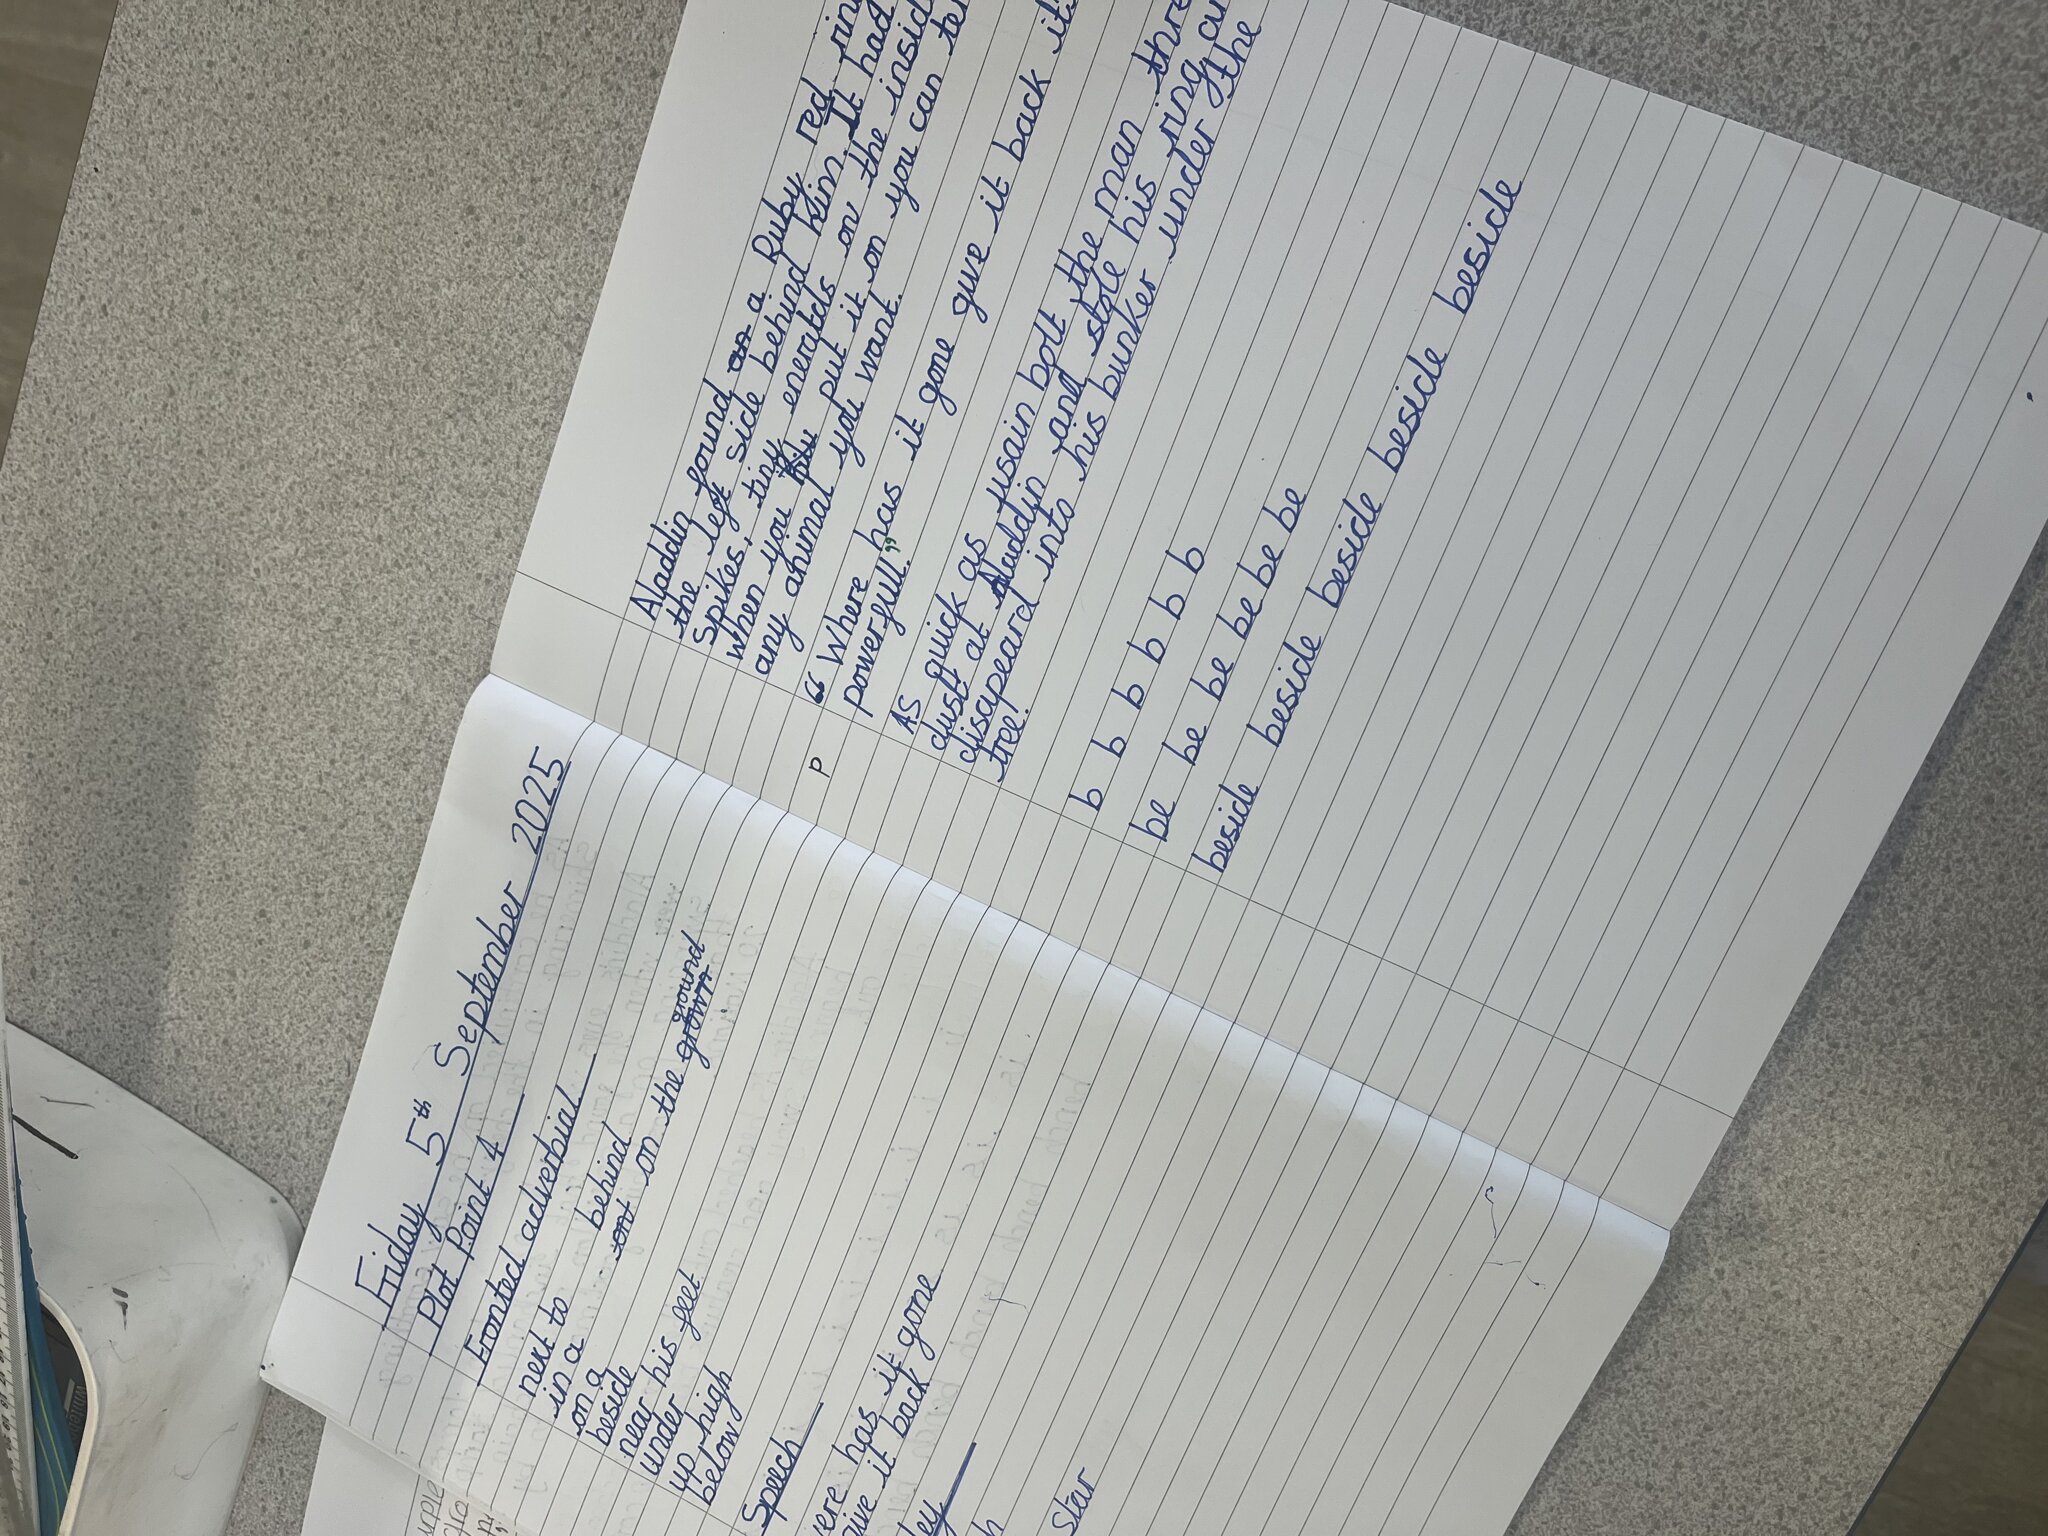 Friday 5th September 2025
Plot Point 4
Fronted adverbial
next to behind
in a ont on the grown ground
on a
beside
near his feet
under
up high
below
Speech
has it gone
it back
Star
Aladdin found an a Ruby red
the left side behind him. It had
spikes, tiny emeralds on the
when you put it on you can
any animal you want.
P
"Where has it gone give it back
powerfull."
As quick as usain bolt the man
dust at Aladdin and stole his ring
disapeard into his bunker under the
tree.
b b b b b b
be be be be be be
beside beside beside beside beside